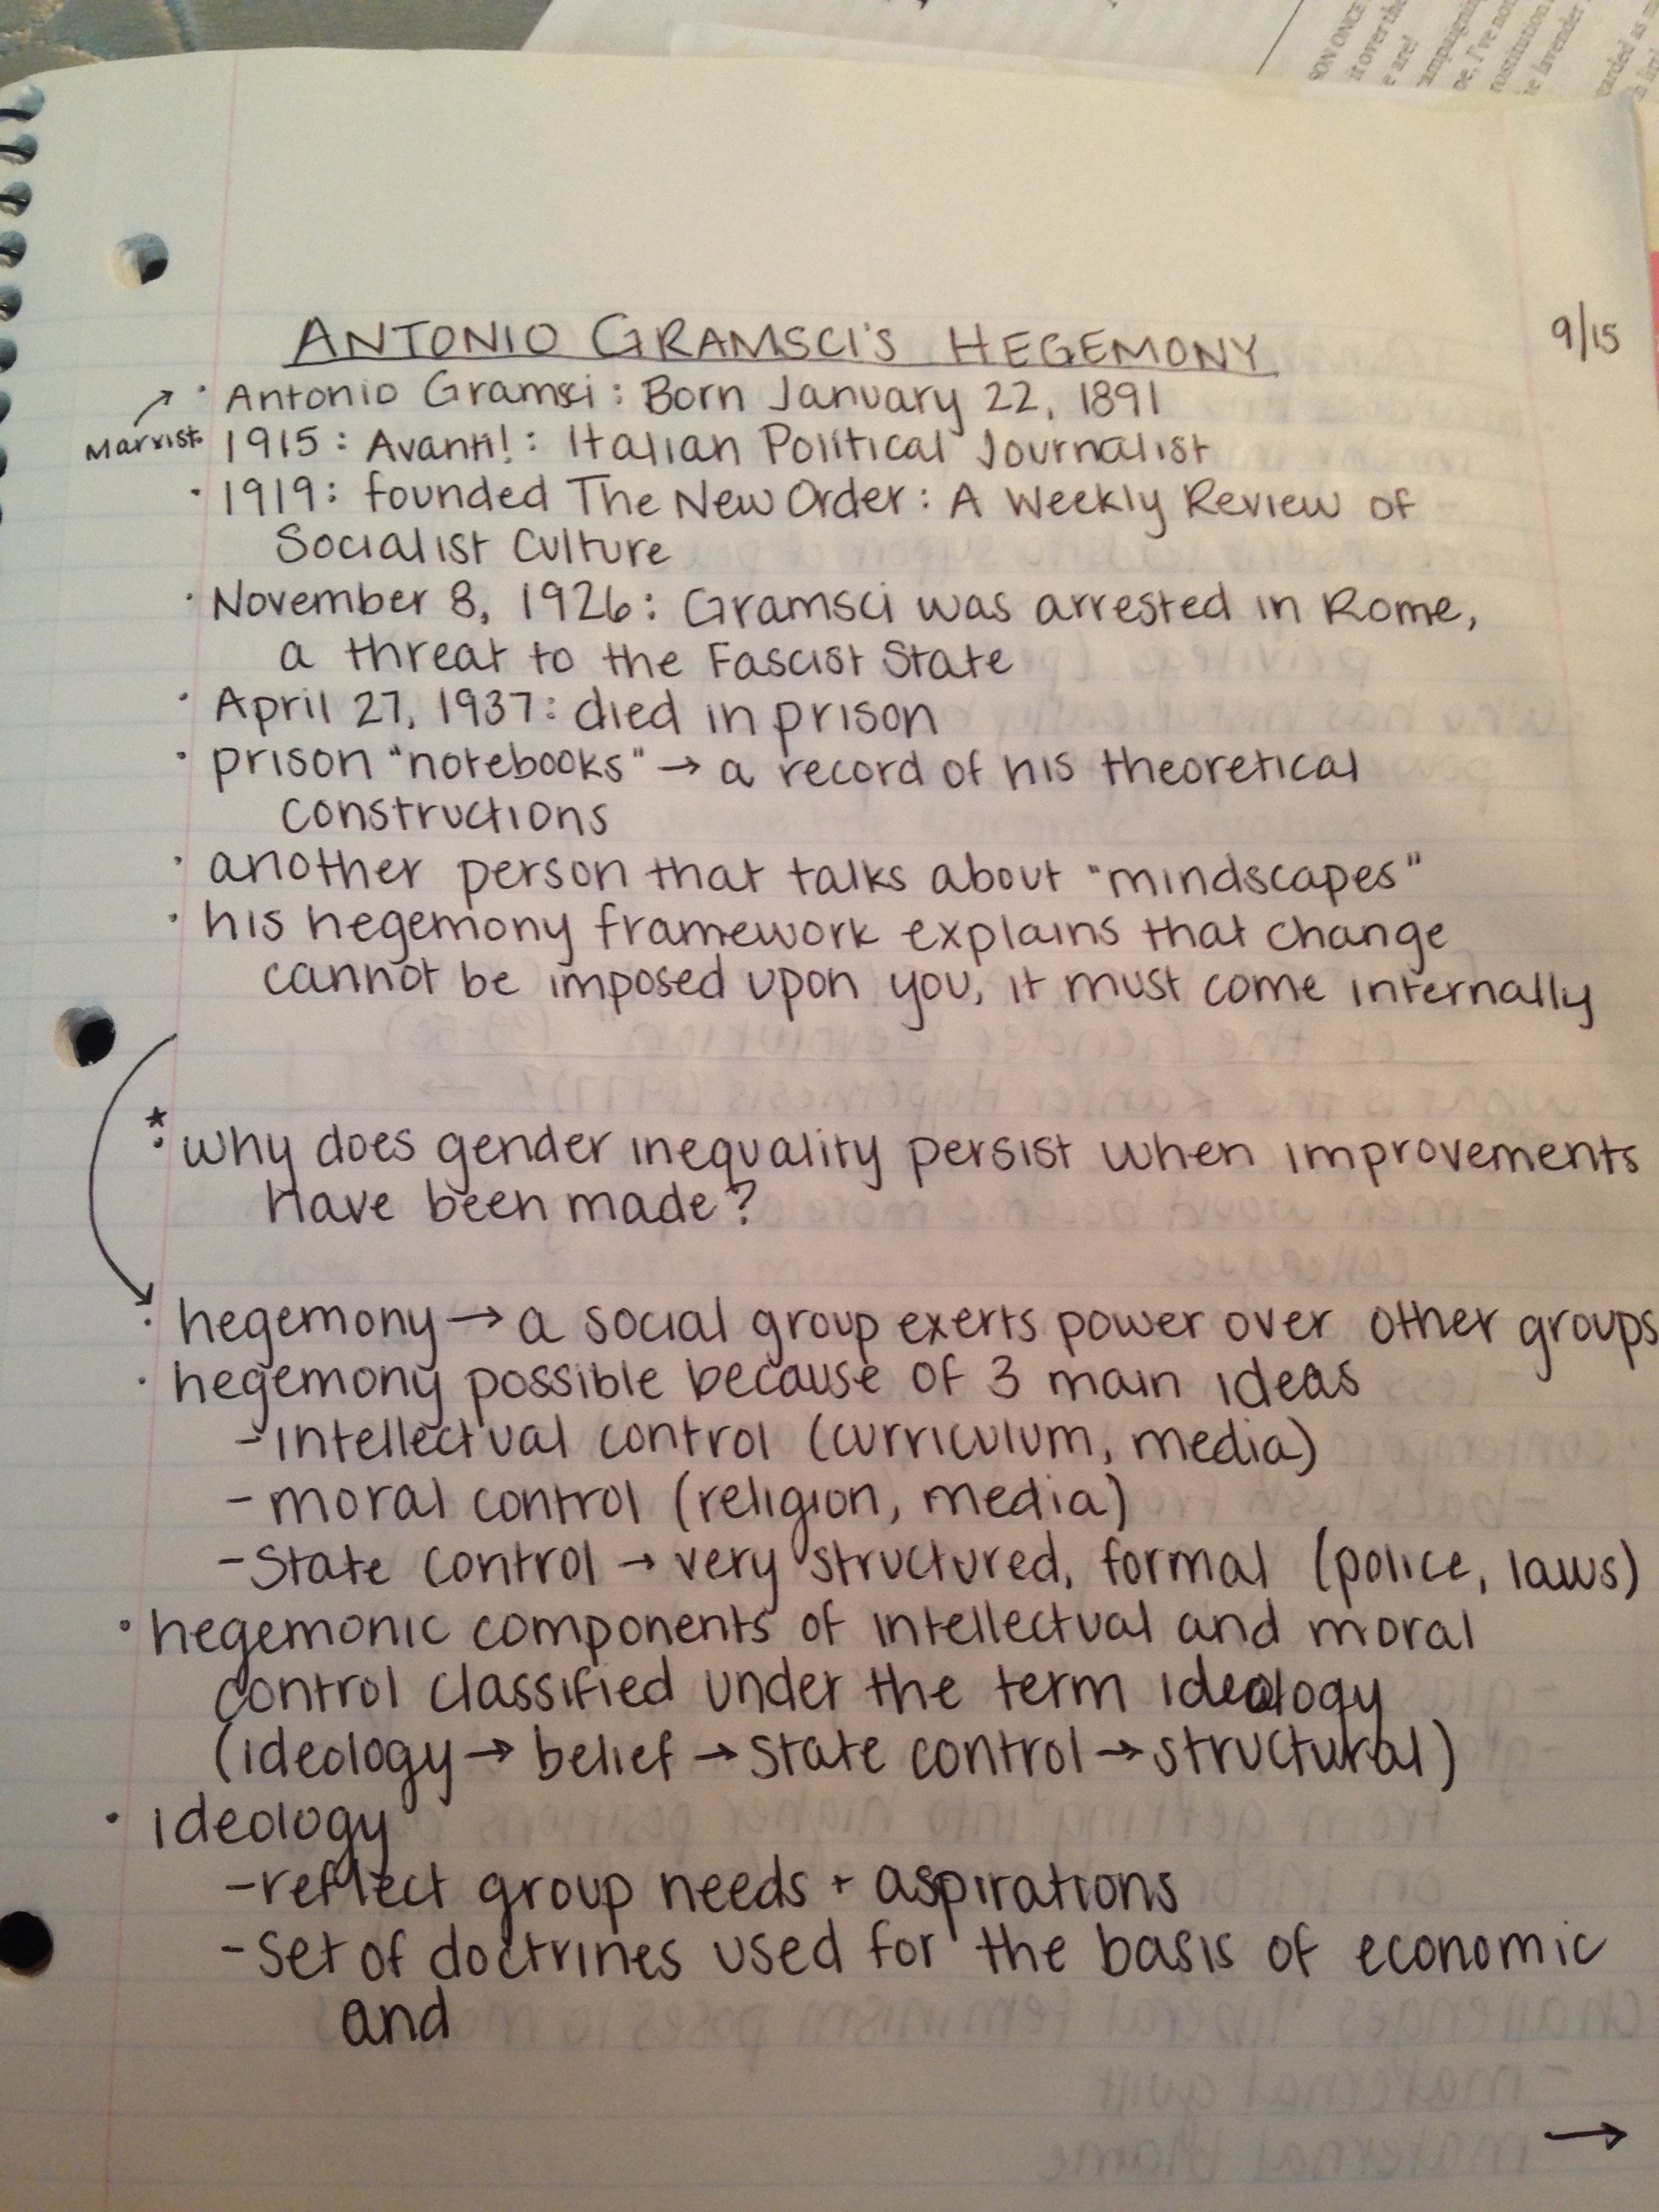 SON ONCE
it over the
e are!
ANTONIO GRAMSCI'S HEGEMONY
9/15
· Antonio Gramsci: Born January 22, 1891
Marxist
· 1915: Avanti!: Italian Political Journalist
· 1919: founded The New Order: A Weekly Review of
Socialist Culture
· November 8, 1926: Gramsci was arrested in Rome,
a threat to the Fascist State
· April 27, 1937: died in prison
· prison "notebooks" → a record of his theoretical
constructions
· another person that talks about "mindscapes"
· his hegemony framework explains that change
cannot be imposed upon you, it must come internally
* · why does gender inequality persist when improvements
have been made?
· hegemony → a social group exerts power over other groups
· hegemony possible because of 3 main ideas
- intellectual control (curriculum, media)
- moral control (religion, media)
- State control → very structured, formal (police, laws)
· hegemonic components of intellectual and moral
control classified under the term ideology
(ideology → belief → State control → structural)
· ideology
- reflect group needs + aspirations
- set of doctrines used for the basis of economic
and
→